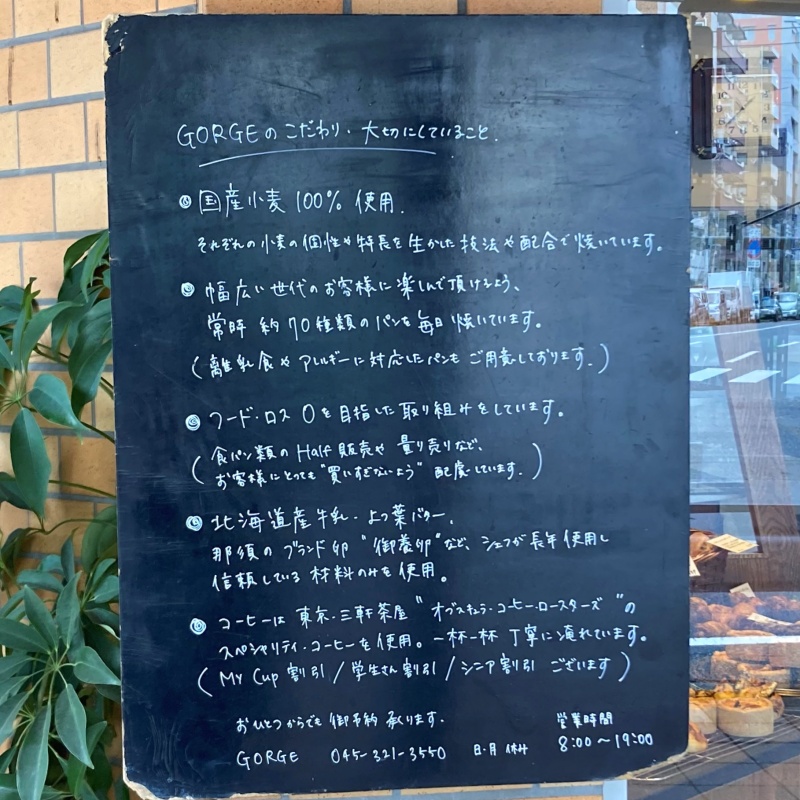 GORGEのこだわり・大切にしていること.
国産小麦 100% 使用.
それぞれの小麦の個性や特長を生かした技法や配合で焼いています。
幅広い世代のお客様に楽しんで頂けるよう、
常時 約70種類のパンを毎日焼いています。
(離乳食やアレルギーに対応したパンもご用意しております.)
フード・ロス 0を目指した取り組みをしています。
(食パン類のHalf販売や 量り売りなど、
お客様にとっても"買いすぎないよう"配慮しています.)
北海道産牛乳・よつ葉バター.
那須のブランド卵"御養卵"など、シェフが長年使用し
信頼している材料のみを使用。
コーヒーは 東京・三軒茶屋"オブスキュラ・コーヒー・ロースターズ"の
スペシャリティ・コーヒーを使用。一杯一杯 丁寧に淹れています。
(My Cup 割引/学生さん割引/シニア割引 ございます)
おひとつからでも 御予約 承ります.
営業時間
GORGE 045-321-3550 日・月 休み 8:00～19:00